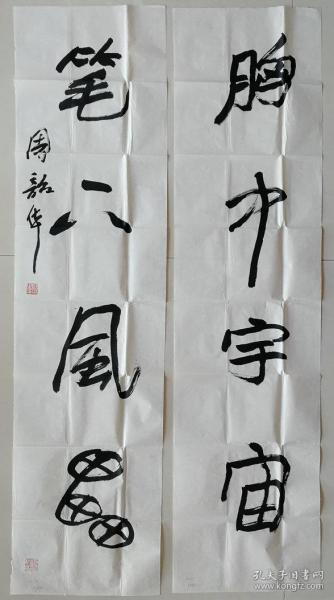 胸中宇宙
笔下風雷
周韶华
孔夫子旧书网